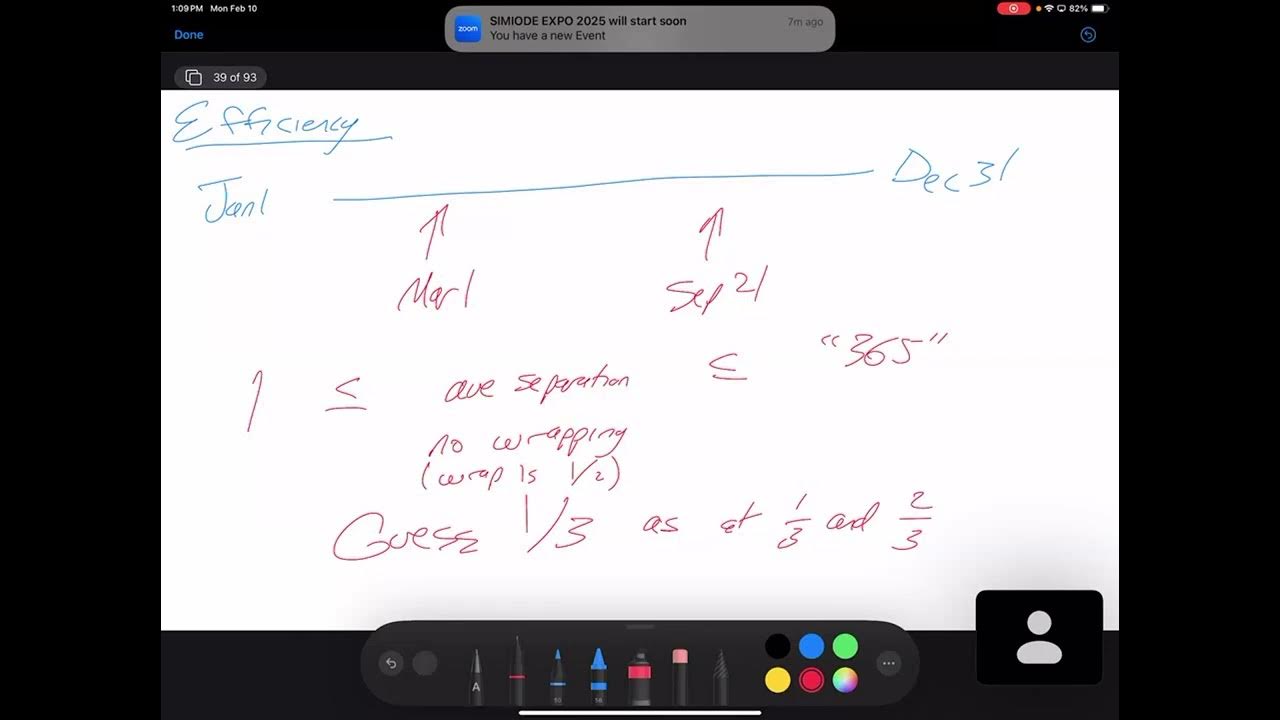 1:09 PM Mon Feb 10
82%
SIMIODE EXPO 2025 will start soon
7m ago
You have a new Event
zoom
Done
39 of 93
Efficiency
Jan 1
Dec 31
Mar 1
Sep 21
1 ≤ ave separation ≤ "365"
no wrapping
(wrap is 1/2)
Guess 1/3 as at 1/3 and 2/3
A
50